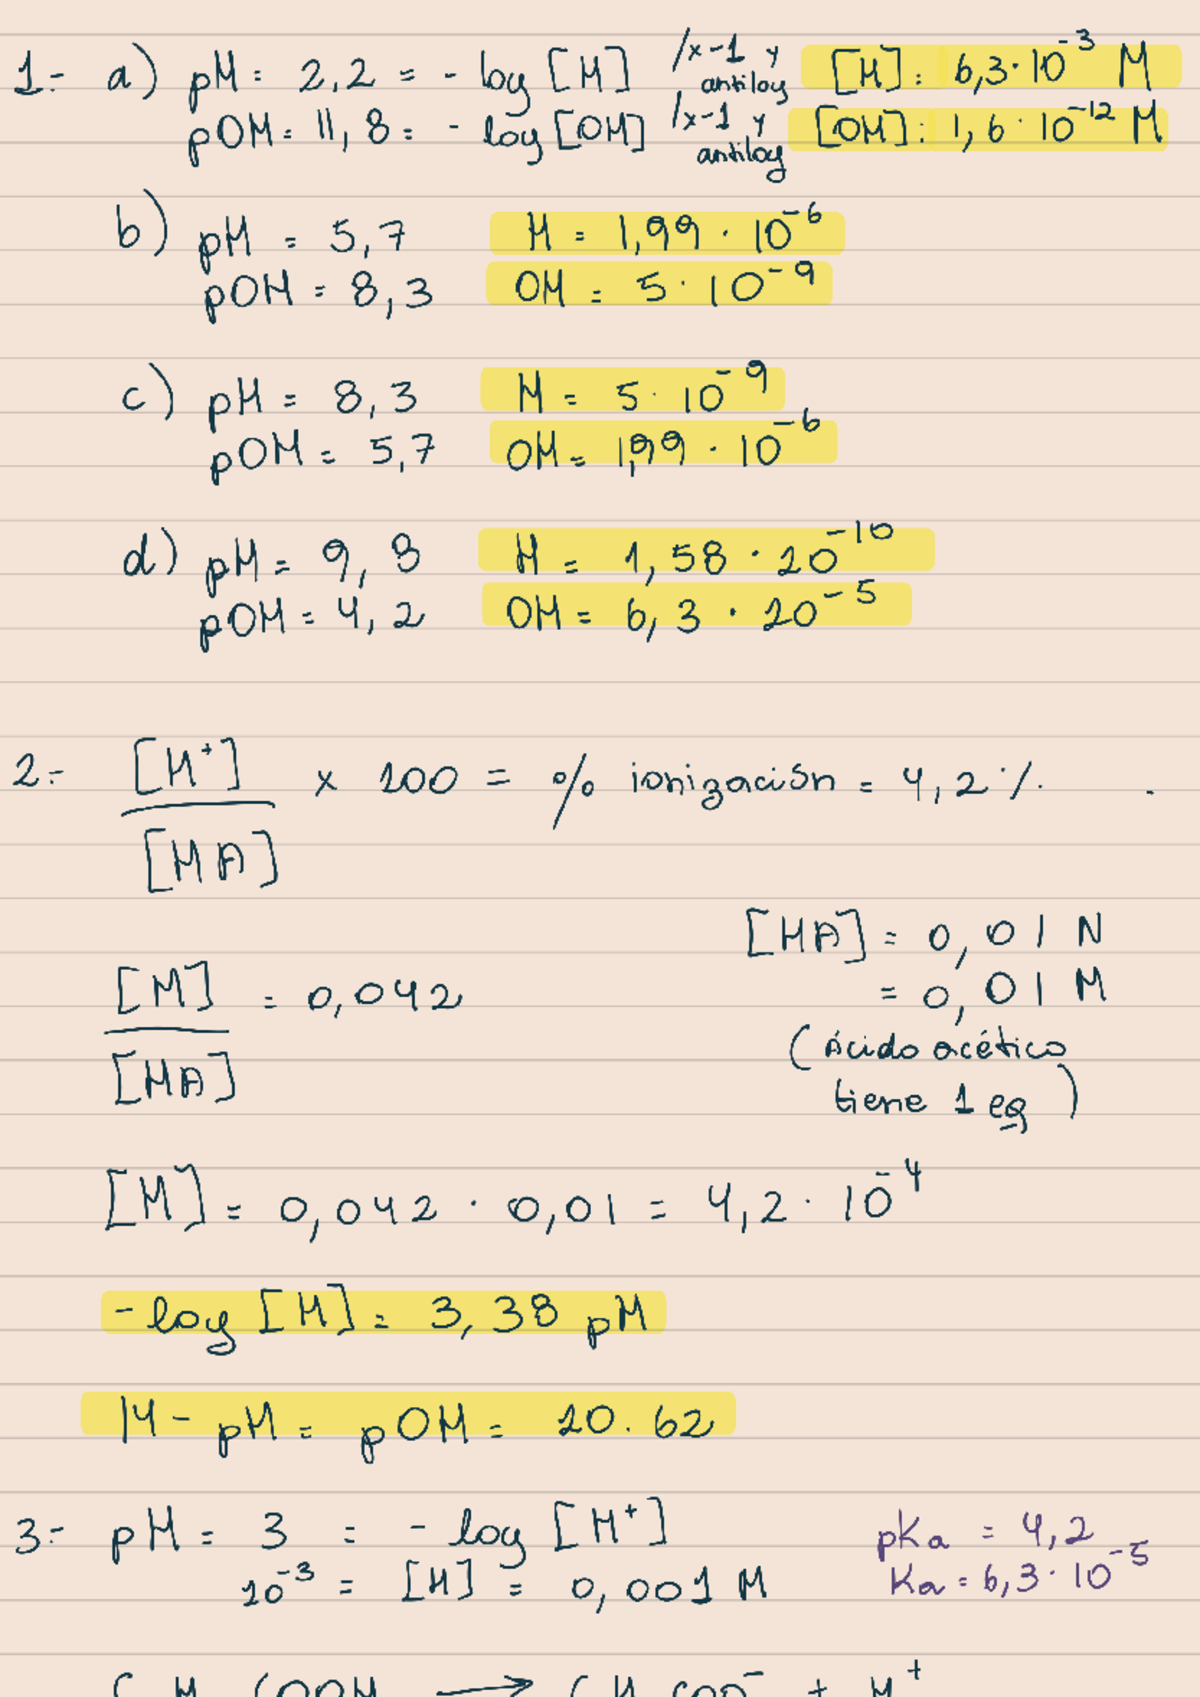 1.- a) pH = 2,2 = - log [H] /x-1 y antilog [H]: 6,3·10⁻³ M
pOH = 11,8 = - log [OH] /x-1 y antilog [OH]: 1,6·10⁻¹² M
b) pH = 5,7 H = 1,99 · 10⁻⁶
pOH = 8,3 OH = 5·10⁻⁹
c) pH = 8,3 H = 5·10⁻⁹
pOH = 5,7 OH = 1,99 · 10⁻⁶
d) pH = 9,8 H = 1,58 · 10⁻¹⁰
pOH = 4,2 OH = 6,3 · 10⁻⁵
2.- [H⁺] x 100 = % ionización = 4,2 %.
[HA]
[HA] = 0,01 N
[H] = 0,042
= 0,01 M
[HA]
(Ácido acético
tiene 1 eq)
[H] = 0,042 · 0,01 = 4,2·10⁻⁴
-log [H] = 3,38 pH
14 - pH = pOH = 10.62
3.- pH = 3 = - log [H⁺] pKa = 4,2
10⁻³ = [H] = 0,001 M Ka = 6,3·10⁻⁵